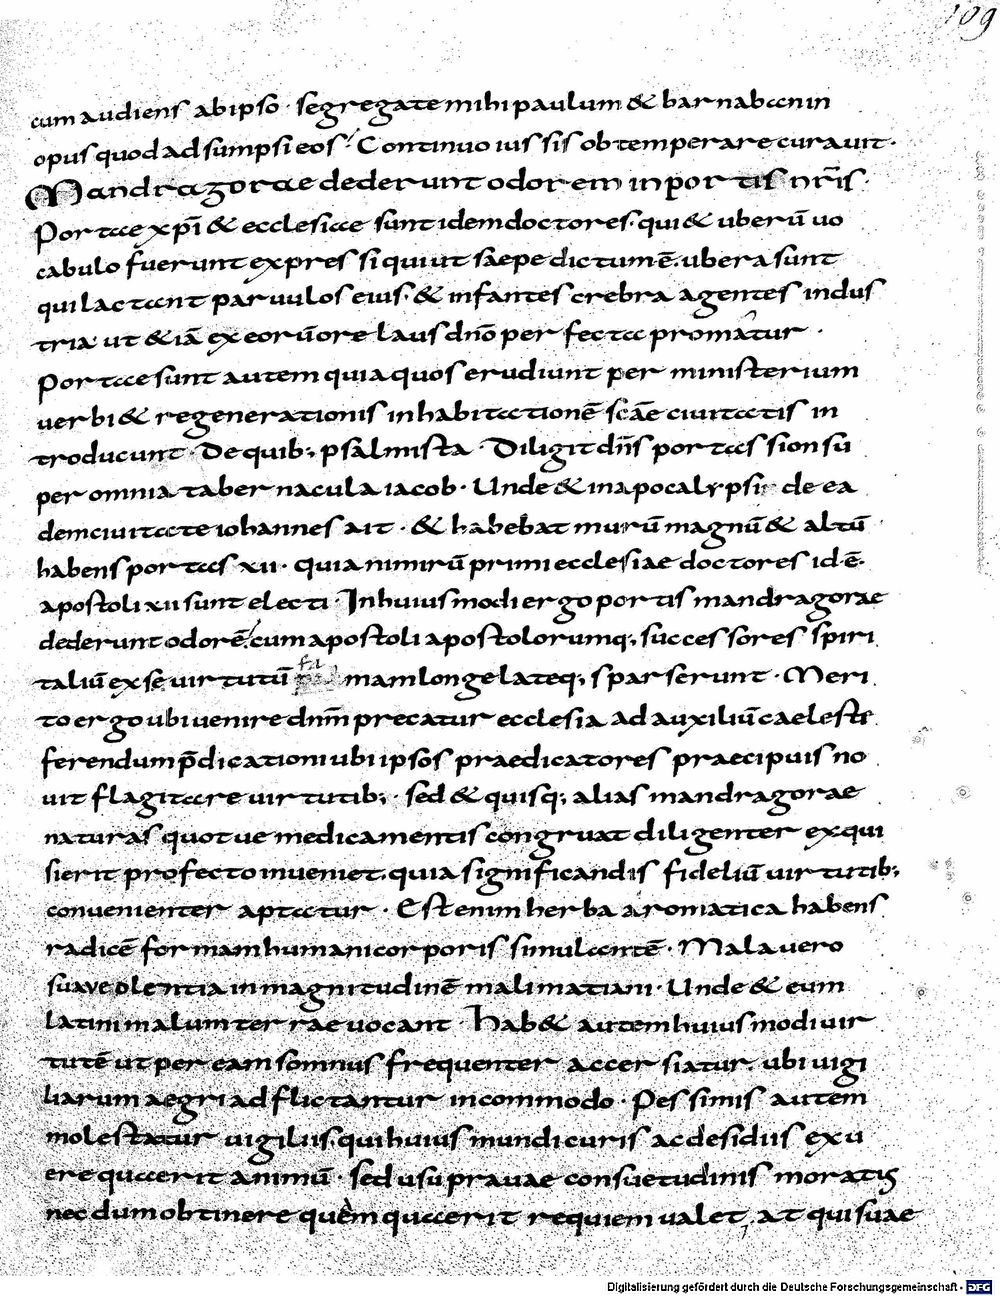 109
cum audiens ab ipso · segregate mihi paulum & barnaban in
opus quod adsumpsi eos · Continuo iussis obtemperare curauit ·
Mandragorae dederunt odorem in portis nr̄is ·
Portae xp̄i & ecclesiae sunt idem doctores · qui & uberū uo
cabulo fuerunt expressi qui ut saepe dictum ē · ubera sunt
qui lactant paruulos eius · & infantes crebra agentes indus
tria ut & iā ex eorū ore laus dn̄o perfecta promatur ·
Portae sunt autem quia quos erudiunt per ministerium
uerbi & regenerationis in habitationē scāe ciuitatis in
troducunt · De quib; psalmista · Diligit dn̄s portas sion sū
per omnia tabernacula iacob · Unde & in apocalypsi de ea
dem ciuitate iohannes ait · & habebat murū magnū & altū
habens portas xii · quia nimirū primi ecclesiae doctores id ē ·
apostoli xii sunt electi · In huiusmodi ergo portis mandragorae
dederunt odorē · cum apostoli apostolorumq; successores spiri
taliū ex se uirtutū fa mam longe lateq; sparserunt · Meri
to ergo ubi uenire dn̄m precatur ecclesia ad auxiliū caeleste
ferendum p̄dicationi ubi ipsos praedicatores praecipuis no
uit flagitare uirtutib; · sed & quisq; alias mandragorae
naturas quotue medicamentis congruat diligenter exqui
sierit profecto inueniet · quia significandis fideliū uirtutib;
conuenienter aptatur · Est enim herba aromatica habens
radicē formam humani corporis simulantē · Mala uero
suaue olentia in magnitudinē mali matiani · Unde & eum
latini malum terrae uocant · Hab& autem huiusmodi uir
tutē ut per eam somnus frequenter accersiatur · ubi uigi
liarum aegri adflictantur incommodo · Pessimis autem
molestatur uigiliis qui huius mundi curis ac desidiis exu
ere quaerit animū · sed usu prauae consuetudinis moratis
necdum obtinere quem quaerit requiem ualet, at qui suae
Digitalisierung gefördert durch die Deutsche Forschungsgemeinschaft - DFG